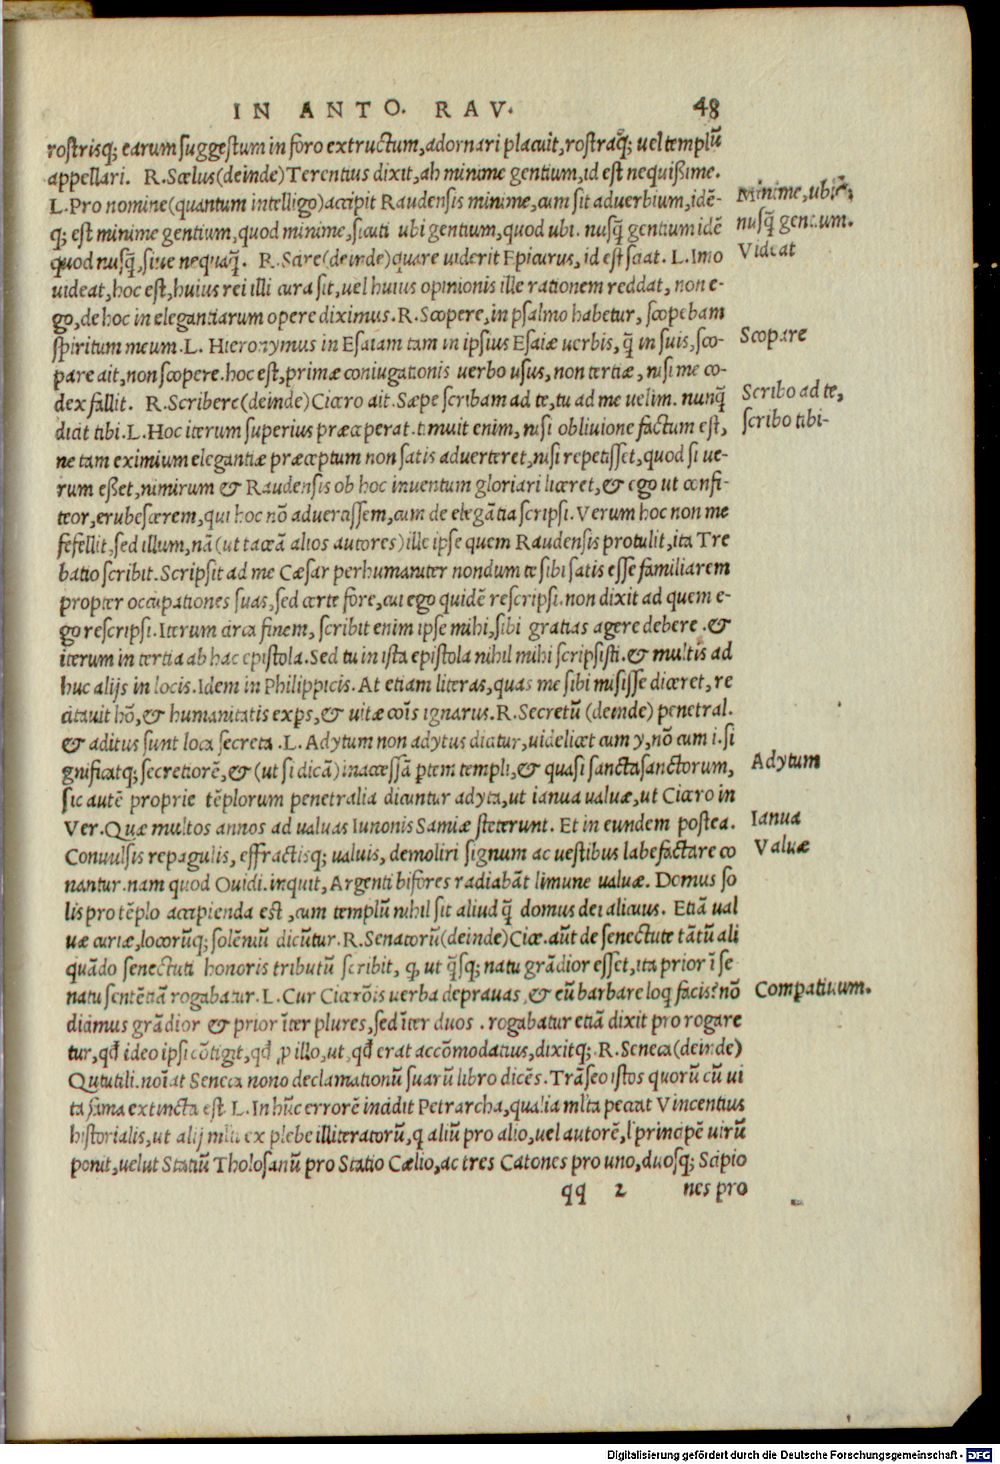 IN ANTO. RAV. 48
rostrisq; earum suggestum in foro extructum, adornari placuit, rostraq; uel templū
appellari. R. Scelus (deinde) Terentius dixit, ah minime gentium, id est nequißime.
L. Pro nomine (quantum intelligo) accipit Raudensis minime, cum sit aduerbium, idē-
q; est minime gentium, quod minime, sicuti ubi gentium, quod ubi. nusq̄ gentium idē
quod nusq̄, siue nequaq̄. R. Scire (deinde) quare uiderit Epicurus, id est sciat. L. Imo
uideat, hoc est, huius rei illi cura sit, uel huius opinionis ille rationem reddat, non e-
go, de hoc in elegantiarum opere diximus. R. Scopere, in psalmo habetur, scopebam
spiritum meum. L. Hieronymus in Esaiam tam in ipsius Esaiæ uerbis, q̄ in suis, sco-
pare ait, non scopere. hoc est, primæ coniugationis uerbo usus, non tertiæ, nisi me co-
dex fallit. R. Scribere (deinde) Cicero ait. Sæpe scribam ad te, tu ad me uelim. nunq̄
dicit tibi. L. Hoc iterum superius præceperat. timuit enim, nisi obliuione factum est,
ne tam eximium elegantiæ præceptum non satis aduerteret, nisi repetisset, quod si ue-
rum eßet, nimirum & Raudensis ob hoc inuentum gloriari liceret, & ego ut confi-
teor, erubescerem, qui hoc nō aduertissem, cum de elegātia scripsi. Verum hoc non me
fefellit, sed illum, nā (ut taceā alios autores) ille ipse quem Raudensis protulit, ita Tre
batio scribit. Scripsit ad me Cæsar perhumaniter nondum te sibi satis esse familiarem
propter occupationes suas, sed certe fore, cui ego quidē rescripsi. non dixit ad quem e-
go rescripsi. Iterum circa finem, scribit enim ipse mihi, sibi gratias agere debere. &
iterum in tertia ab hac epistola. Sed tu in ista epistola nihil mihi scripsisti. & multis ad
huc alijs in locis. Idem in Philippicis. At etiam literas, quas me sibi misisse diceret, re
citauit hō, & humanitatis exp̱s, & uitæ cōis ignarus. R. Secretū (deinde) penetral.
& aditus sunt loca secreta. L. Adytum non adytus dicitur, uidelicet cum y, nō cum i. si
gnificatq; secretiorē, & (ut si dicā) inaccessā p̱tem templi, & quasi sancta sanctorum,
sic autē proprie tēplorum penetralia dicuntur adyta, ut ianua ualuæ, ut Cicero in
Ver. Quæ multos annos ad ualuas Iunonis Samiæ steterunt. Et in eundem postea.
Conuulsis repagulis, effractisq; ualuis, demoliri signum ac uestibus labefactare co
nantur. nam quod Ouidi. inquit, Argenti bifores radiabāt limine ualuæ. Domus so
lis pro tēplo accipienda est, cum templū nihil sit aliud q̄ domus dei alicuius. Etiā ual
uæ curiæ, locorūq; solēniū dicūtur. R. Senatorū (deinde) Cice. aūt de senectute tātū ali
quādo senectuti honoris tributū scribit, q, ut q̄sq; natu grādior esset, ita prior ī se
natu sentētiā rogabatur. L. Cur Cicerōis uerba deprauas, & eū barbare loq̄ facis? nō
dicimus grādior & prior īter plures, sed īter duos. rogabatur etiā dixit pro rogare
tur, qđ ideo ipsi cōtigit, qđ ꝓ illo, ut, qđ erat accōmodatius, dixitq;. R. Seneca (deinde)
Qututili. noīat Seneca nono declamationū suarū libro dicēs. Trāseo istos quorū cū ui
ta fama extincta est. L. In hūc errorē incidit Petrarcha, qualia mīta peccat Vincentius
historialis, ut alij mīti ex plebe illiteratorū, q aliū pro alio, uel autorē, ł principē uirū
ponit, uelut Statiū Tholosanū pro Statio Cælio, ac tres Catones pro uno, duosq; Scipio
qq 2 nes pro
Minime, ubi,
nusq̄ gentium.
Videat
Scopare
Scribo ad te,
scribo tibi-
Adytum
Ianua
Valuæ
Compatiuum.
Digitalisierung gefördert durch die Deutsche Forschungsgemeinschaft - DFG